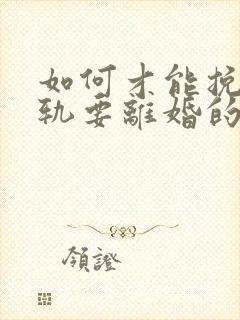 如何才能挽
轨要離婚的
領證